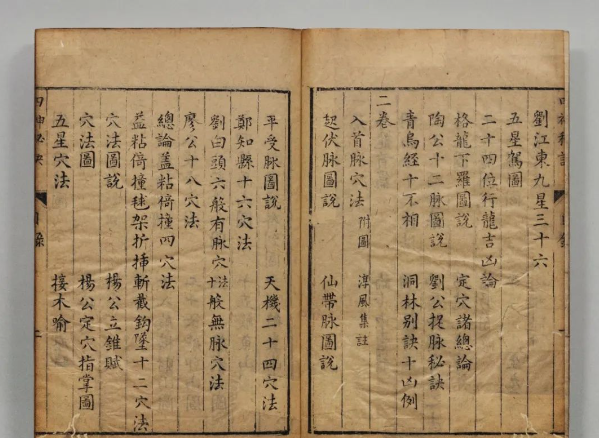 劉江東九星三十六
五星篤圖
二十四位行龍吉凶論
格龍下羅圖說 定穴諸總論
陶公十二脉圖說 劉公捉脉秘訣
青烏經十不相 洞林別訣十凶例
二卷
入首脉穴法 附圖 淳風集註
起伏脉圖說 仙帶脉圖說
平受脉圖說 天機二十四穴法
鄭知縣十六穴法
劉白頭六般有脉穴法十般無脉穴法
廖公十八穴法
總論蓋粘倚撞四穴法
益粘倚撞毬架折挿斬截鈎墜十二穴法
穴法圖說 楊公立錐賦
穴法圖 楊公定穴指掌圖
五星穴法 接木喻
目錄